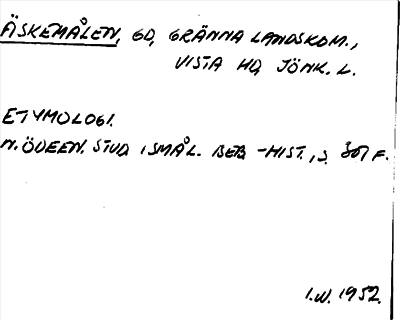 ÄSKEMÅLEN, GD, GRÄNNA LANDSKOM.,
VISTA HD, JÖNK. L.
ETYMOLOGI.
N. ÖDEEN. STUD. I SMÅL. BEB. -HIST., S. F.
I.W. 1952.